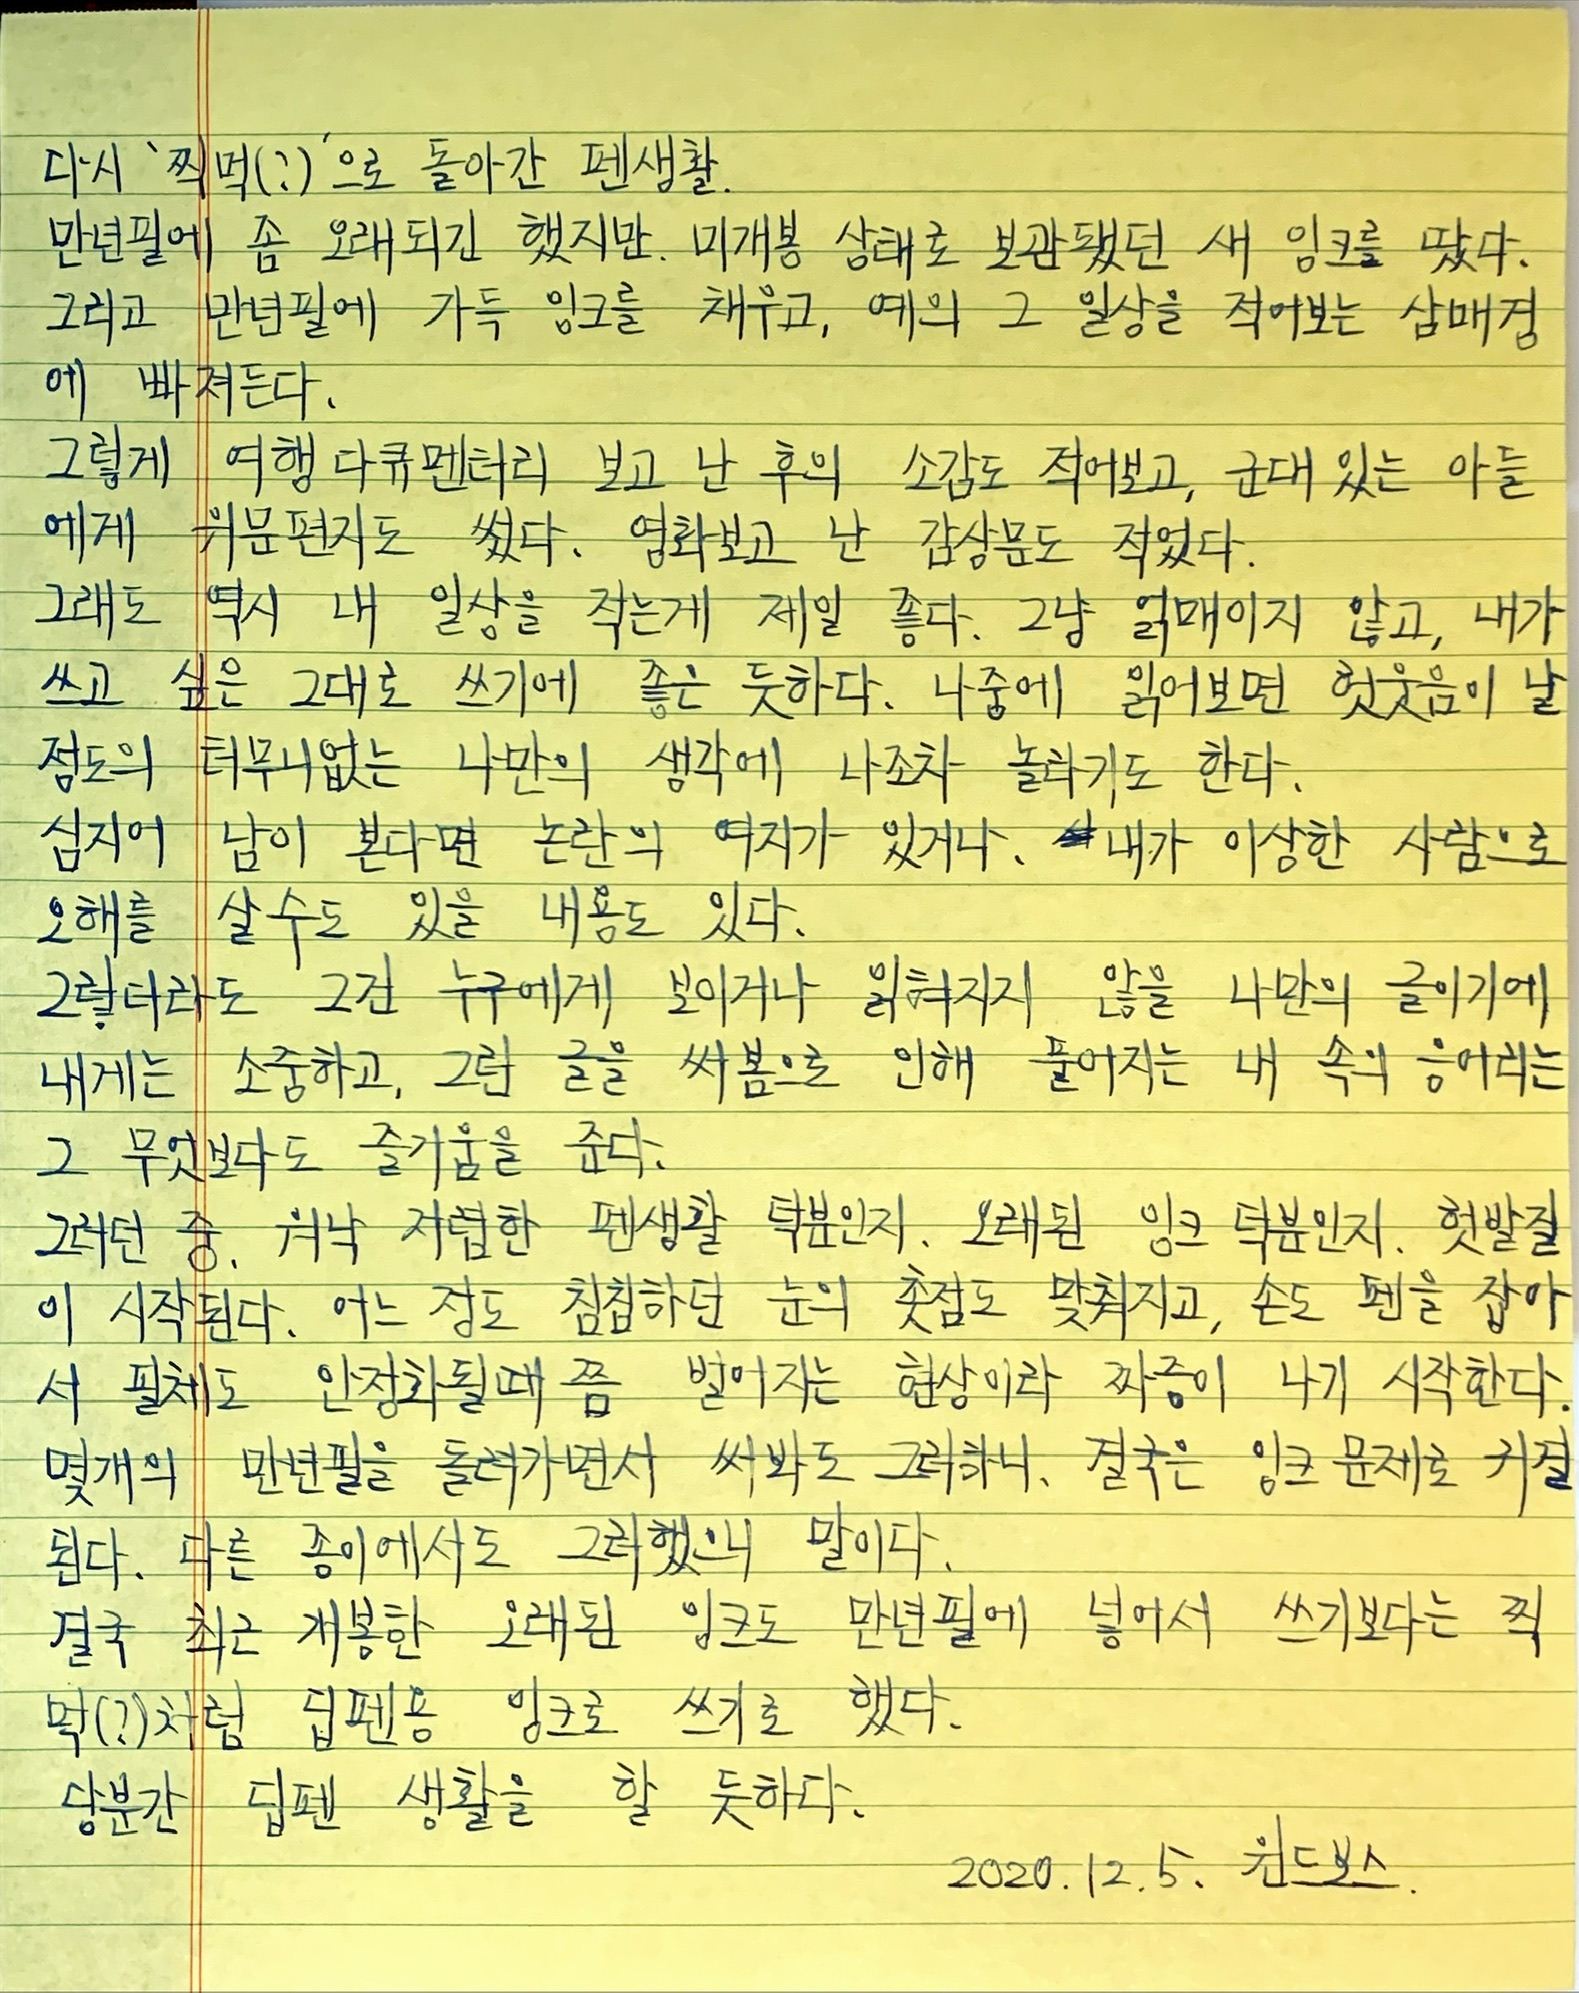 다시 '찍먹(?)'으로 돌아간 펜생활.
만년필에 좀 오래되긴 했지만. 미개봉 상태로 보관됐던 새 잉크를 땄다.
그리고 만년필에 가득 잉크를 채우고, 예의 그 일상을 적어보는 삼매경
에 빠져든다.
그렇게 여행다큐멘터리 보고 난 후의 소감도 적어보고, 군대 있는 아들
에게 위문편지도 썼다. 영화보고 난 감상문도 적었다.
그래도 역시 내 일상을 적는게 제일 좋다. 그냥 얽매이지 않고, 내가
쓰고 싶은 그대로 쓰기에 좋은 듯하다. 나중에 읽어보면 헛웃음이 날
점도의 터무니없는 나만의 생각에 나조차 놀라기도 한다.
심지어 남이 본다면 논란의 여지가 있거나. 내가 이상한 사람으로
오해를 살 수도 있을 내용도 있다.
그렇더라도 그건 누구에게 보이거나 읽혀지지 않을 나만의 글이기에
내게는 소중하고, 그런 글을 써봄으로 인해 풀어지는 내 속의 응어리는
그 무엇보다도 즐거움을 준다.
그러던 중. 워낙 저렴한 펜생활 탁분인지. 오래된 잉크 탁분인지. 헛발질
이 시작된다. 어느 정도 침침하던 눈의 촛점도 맞춰지고, 손도 펜을 잡아
서 필체도 안정화될때쯤 벌어지는 현상이라 짜증이 나기 시작한다.
몇개의 만년필을 돌려가면서 써봐도 그러하니. 결국은 잉크 문제로 귀결
된다. 다른 종이에서도 그러했으니 말이다.
결국 최근 개봉한 오래된 잉크도 만년필에 넣어서 쓰기보다는 찍
먹(?)처럼 딥펜용 잉크로 쓰기로 했다.
당분간 딥펜 생활을 할 듯하다.
2020.12.5. 윈드보스.